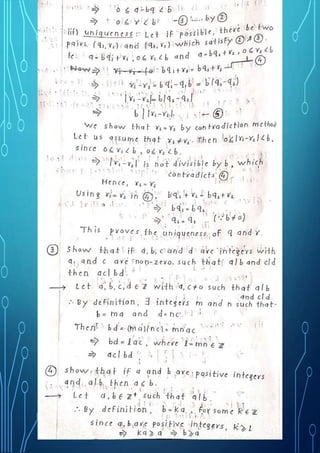 ⇒ 0 ≤ a-bq < b
⇒ 0 ≤ r < b —① ... by ②
iii) uniqueness:- Let if possible, there be two
pairs (q₁, r₁) and (q₂, r₂) which satisfy ② & ③.
ie. a = bq₁+r₁, 0≤r₁<b and a = bq₂+r₂, 0≤r₂<b
bq₁+r₁ = bq₂+r₂ —④
⇒ r₁-r₂ = bq₂-q₁b = b(q₂-q₁)
⇒ |r₁-r₂| = b|q₂-q₁|
⇒ b | |r₁-r₂| —⑤
We show that r₁=r₂ by contradiction method
Let us assume that r₁≠r₂. Then 0≤|r₁-r₂|<b,
since 0≤r₁<b, 0≤r₂<b.
⇒ |r₁-r₂| is not divisible by b, which
contradicts ④.
Hence, r₁=r₂
Using r₁=r₂ in ④, bq₁+r₂=bq₂+r₂
⇒ bq₁=bq₂
⇒ q₁=q₂ (∵b≠0)
This proves the uniqueness of q and r.
③ Show that if a, b, c and d are integers with
a, and c are non-zero, such that a|b and c|d
then ac|bd.
→ Let a, b, c, d ∈ Z with a, c≠0 such that a|b
and c|d.
∴ By definition, ∃ integers m and n such that
b=ma and d=nc.
Then bd=(ma)(nc)=mnac
⇒ bd=lac, where l=mn∈Z
⇒ ac|bd
④ show that if a and b are positive integers
and a|b then a≤b.
→ Let a, b ∈ Z⁺ such that a|b.
∴ By definition, b=ka, for some k∈Z
since a, b are positive integers, k≥1
⇒ ka≥a ⇒ b≥a